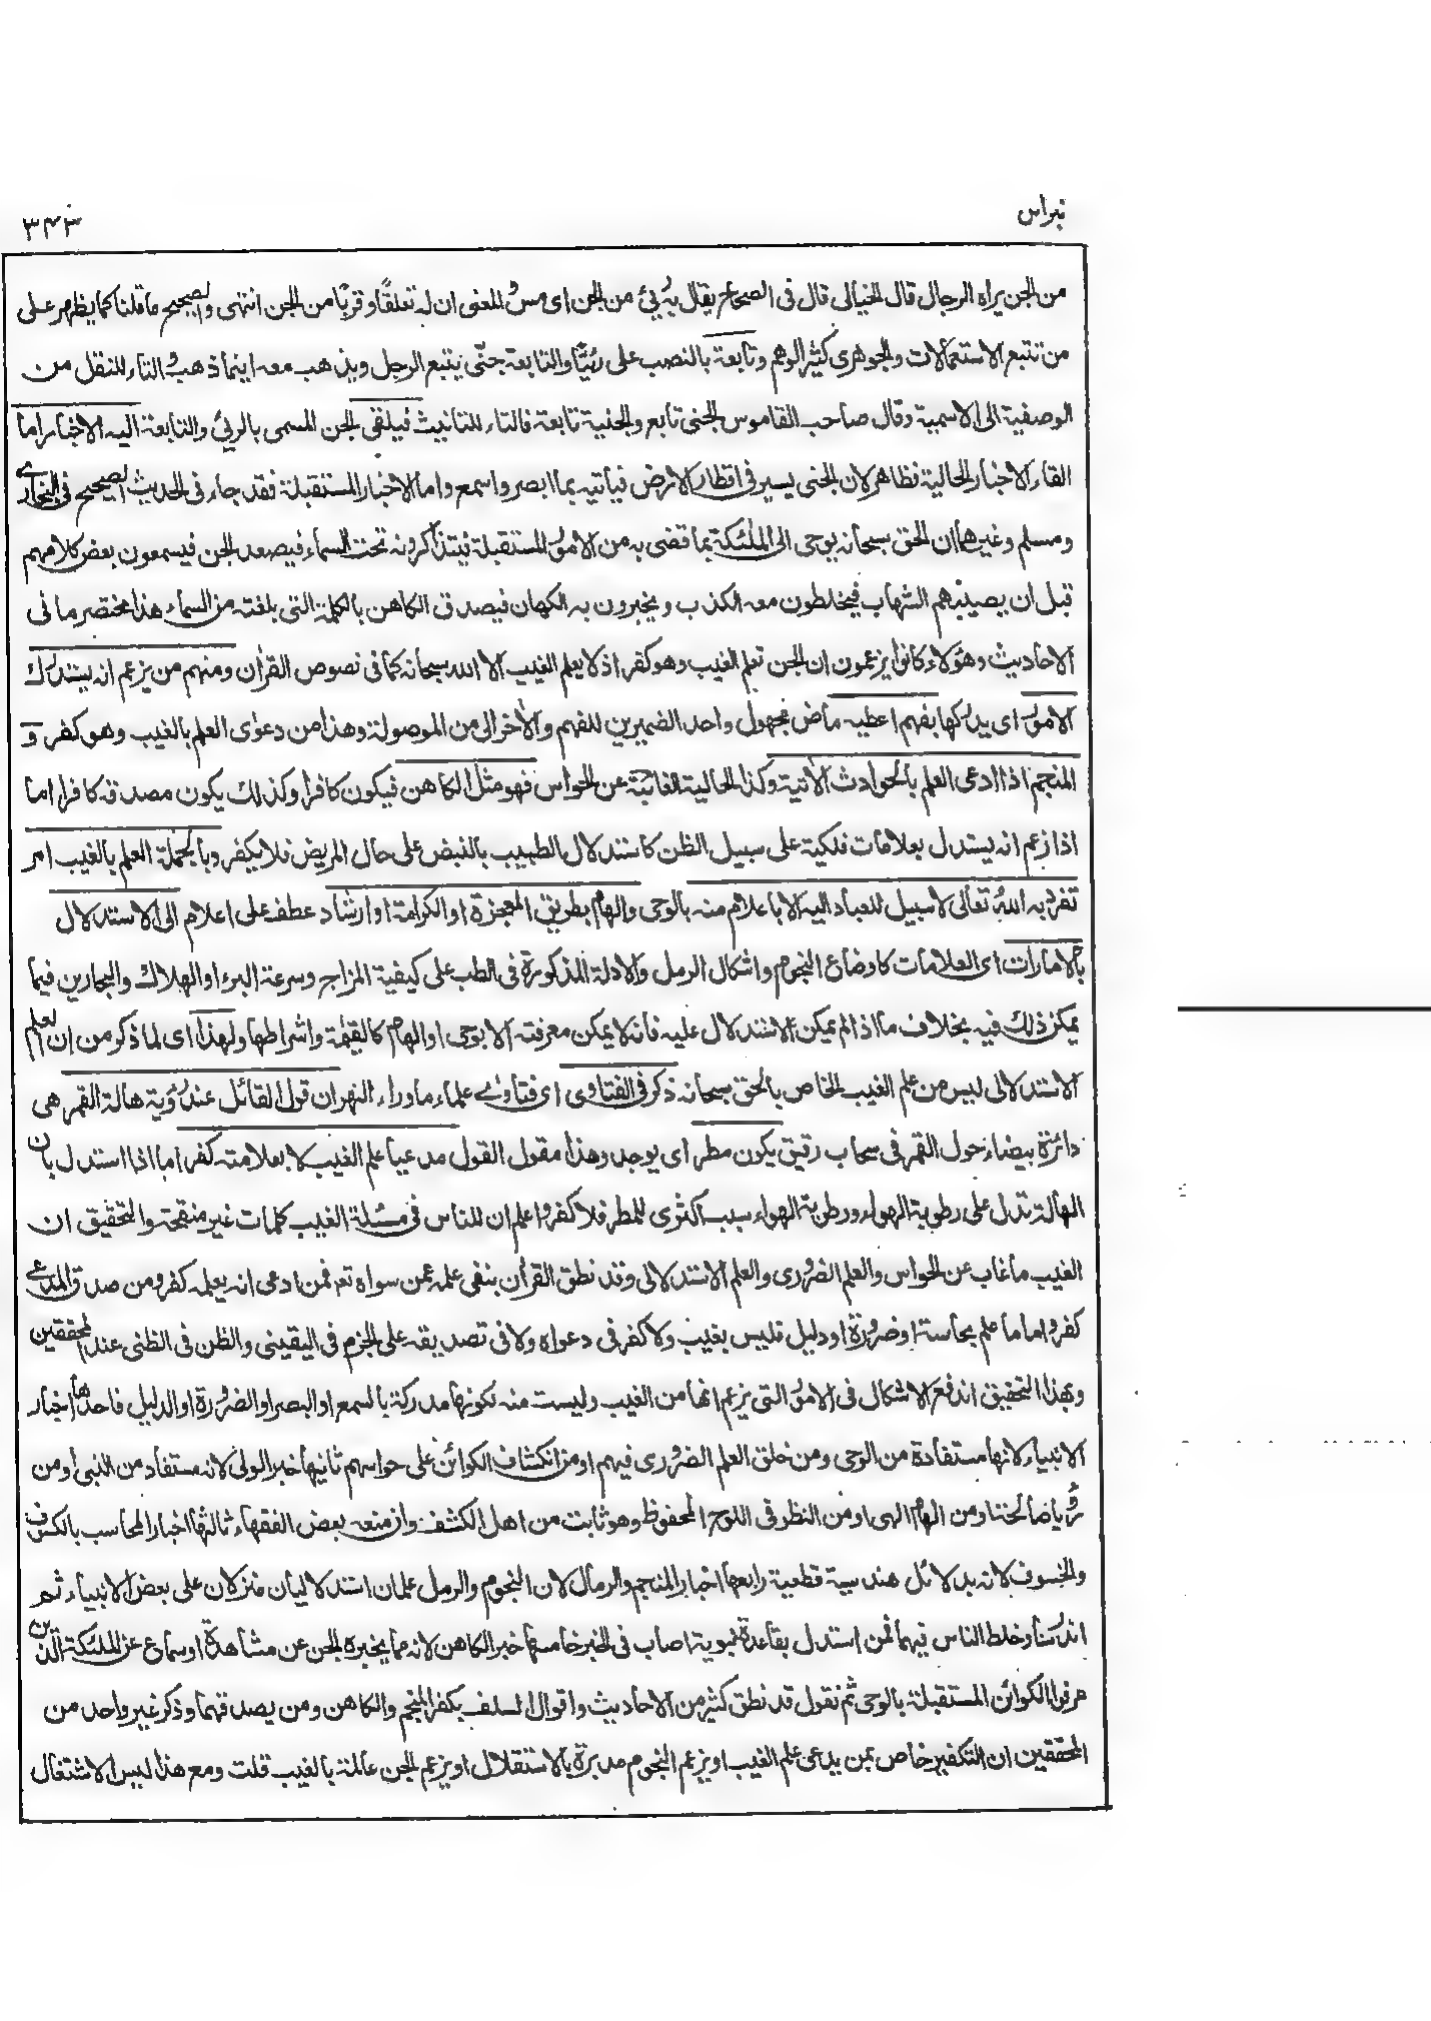 نبراس
۳۴۳
من الجن يراه الرجال قال الخيالى قال فى الصحاح يقال به رئى من الجن اى مس المعنى ان له تعلقًا وقربًا من الجن انتهى والصحيح ما قلنا كما يظهر على
من تتبع الاستعمالات والجوهرى كثير الوهم وتابعة بالنصب على رئيًّا والتابعة جنّى يتبع الرجل ويذهب معه اينما ذهب والتاء للنقل من
الوصفية الى الاسمية وقال صاحب القاموس الجنى تابع والجنية تابعة فالتاء للتانيث فيلقى الجن المسمى بالرئى والتابعة اليه الاخبار اما
القاء الاخبار الحالية فظاهر لان الجنى يسير فى اقطار الارض فياتيه بما ابصر واسمع واما الاخبار المستقبلة فقد جاء فى الحديث الصحيح فى البخارى
ومسلم وغيرهما ان الحق سبحانه يوحى الى الملئكة بما قضى به من الامور المستقبلة فيتذاكرونه تحت السماء فيصعد الجن فيسمعون بعض كلامهم
قبل ان يصيبهم الشهاب فيخلطون معه الكذب ويخبرون به الكهان فيصدق الكاهن بالكلمة التى بلغته من السماء هذا مختصر ما فى
الاحاديث وهؤلاء كانوا يزعمون ان الجن تعلم الغيب وهو كفر اذ لا يعلم الغيب الا الله سبحانه كما فى نصوص القرأن ومنهم من يزعم انه يستدرك
الامور اى يدركها بفهم اعطيه ماض مجهول واحد الضميرين للفهم والأخر الى من الموصولة وهذا من دعوى العلم بالغيب وهو كفر و
المنجم اذا ادعى العلم بالحوادث الأتية وكذا الحالية الغائبة عن الحواس فهو مثل الكاهن فيكون كافرا وكذلك يكون مصدقه كافرا اما
اذا زعم انه يستدل بعلامات فلكية على سبيل الظن كاستدلال الطبيب بالنبض على حال المريض فلا يكفر وبالجملة العلم بالغيب امر
تفرد به الله تعالى لا سبيل للعباد اليه الا باعلام منه بالوحى والهام بطريق المعجزة او الكرامة او ارشاد عطف على اعلام الى الاستدلال
بالامارات اى العلامات كاوضاع النجوم واشكال الرمل والادلة المذكورة فى الطب على كيفية المزاج وسرعة البرء او الهلاك والبحارين فيما
يمكن ذلك فيه بخلاف ما اذا لم يمكن الاستدلال عليه فانه لا يمكن معرفته الا بوحى او الهام كالقيٰمة واشراطها ولهذا اى لما ذكر من ان العلم
الاستدلالى ليس من علم الغيب الخاص بالحق سبحانه ذكر فى الفتاوى اى فتاوى علماء ماوراء النهر ان قول القائل عند رؤية هالة القمر هى
دائرة بيضاء حول القمر فى سحاب رقيق يكون مطر اى يوجد وهذا مقول القول مدعيا علم الغيب لا بعلامته كفر اما اذا استدل بان
الهالة تدل على رطوبة الهواء ورطوبة الهواء سبب اكثرى للمطر فلا كفر واعلم ان للناس فى مسئلة الغيب كلمات غير منقحة والتحقيق ان
الغيب ما غاب عن الحواس والعلم الضرورى والعلم الاستدلالى وقد نطق القرأن بنفى علمه عمن سواه تعه فمن ادعى انه يعلمه كفر ومن صدق المدعى
كفر واما ما علم بحاسة او ضرورة او دليل فليس بغيب ولا كفر فى دعواه ولا فى تصديقه على الجزم فى اليقينى والظن فى الظنى عند المحققين
وبهذا التحقيق اندفع الاشكال فى الامور التى يزعم انها من الغيب وليست منه لكونها مدركة بالسمع او البصر او الضرورة او الدليل فاحدها اخبار
الانبياء لانها مستفادة من الوحى ومن خلق العلم الضرورى فيهم او من انكشاف الكوائن على حواسهم ثانيها خبر الولى لانه مستفاد من النبى او من
رؤيا صالحة او من الهام الهى او من النظر فى اللوح المحفوظ وهو ثابت من اهل الكشف وان منعه بعض الفقهاء ثالثها اخبار المحاسب بالكسوف
والخسوف لانه بدلائل هندسية قطعية رابعها اخبار المنجم والرمال لان النجوم والرمل علمان استدلاليان منزلان على بعض الانبياء ثم
اندرسا وخلط الناس فيهما فمن استدل بقاعدة نبوية اصاب فى الخبر خامسها خبر الكاهن لانه مما يخبره الجن عن مشاهدة او سماع عن الملئكة الذين
عرفوا الكوائن المستقبلة بالوحى ثم نقول قد نطق كثير من الاحاديث واقوال السلف بكفر المنجم والكاهن ومن يصدقهما وذكر غير واحد من
المحققين ان التكفير خاص بمن يدعى علم الغيب او يزعم النجوم مدبرة بالاستقلال او يزعم الجن عالمة بالغيب قلت ومع هذا ليس الاشتغال